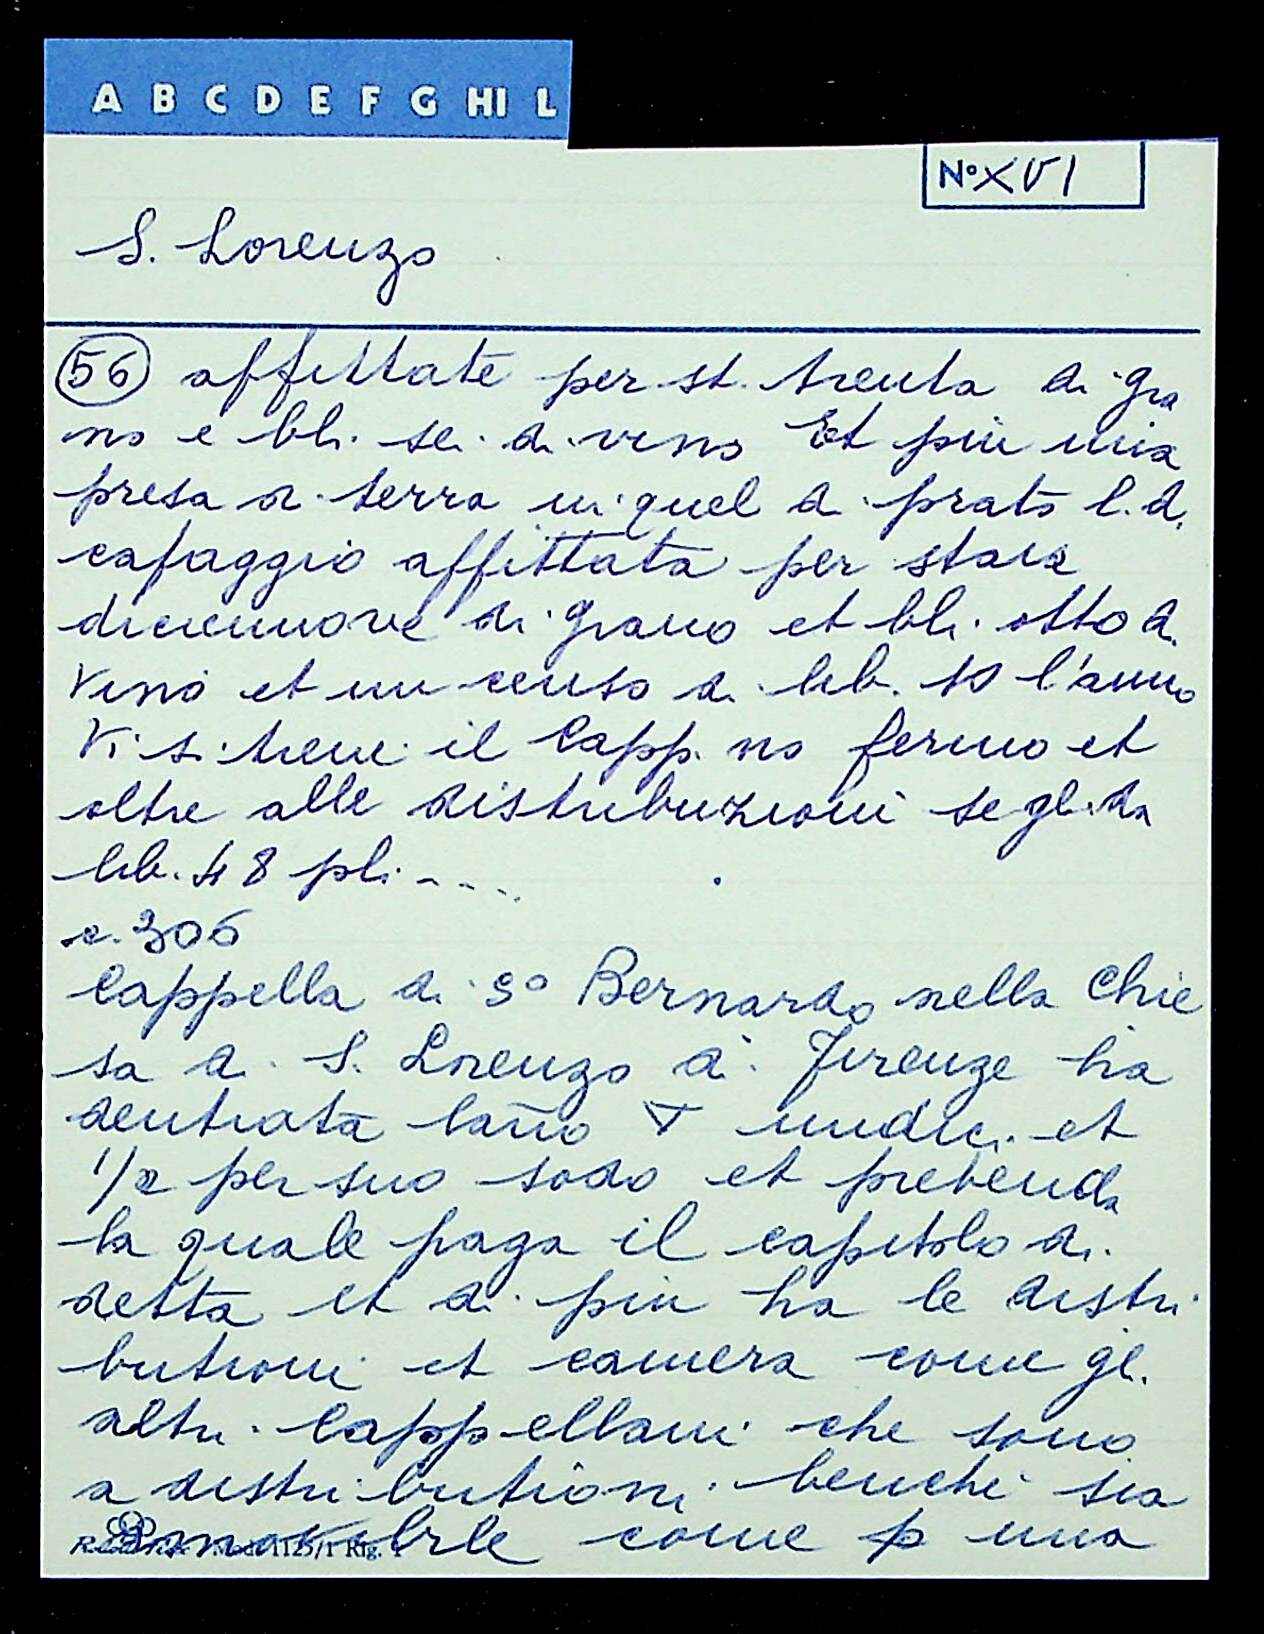 A B C D E F G HI L
Nº XVI
S. Lorenzo
56 affittate per st. trenta di gra
no e bli. sei di vino Et più una
presa di terra in quel di prato l.d.
cafaggio affittata per staia
diciennove di grano et bli. otto di
vino et un censo di lib. 10 l'anno
Vi si tiene il Capp.no fermo et
oltre alle distribuzioni se gli da
lib. 48 pli....
c. 306
Cappella di Sº Bernardo nella Chie
sa di S. Lorenzo di Firenze ha
dentrata lano ∇ undici et
1/2 per suo sodo et prebenda
la quale paga il capitolo di
detta et di più ha le distri
butioni et camera come gli
altri Cappellani che sono
a distributioni benchè sia
amovibile come p una